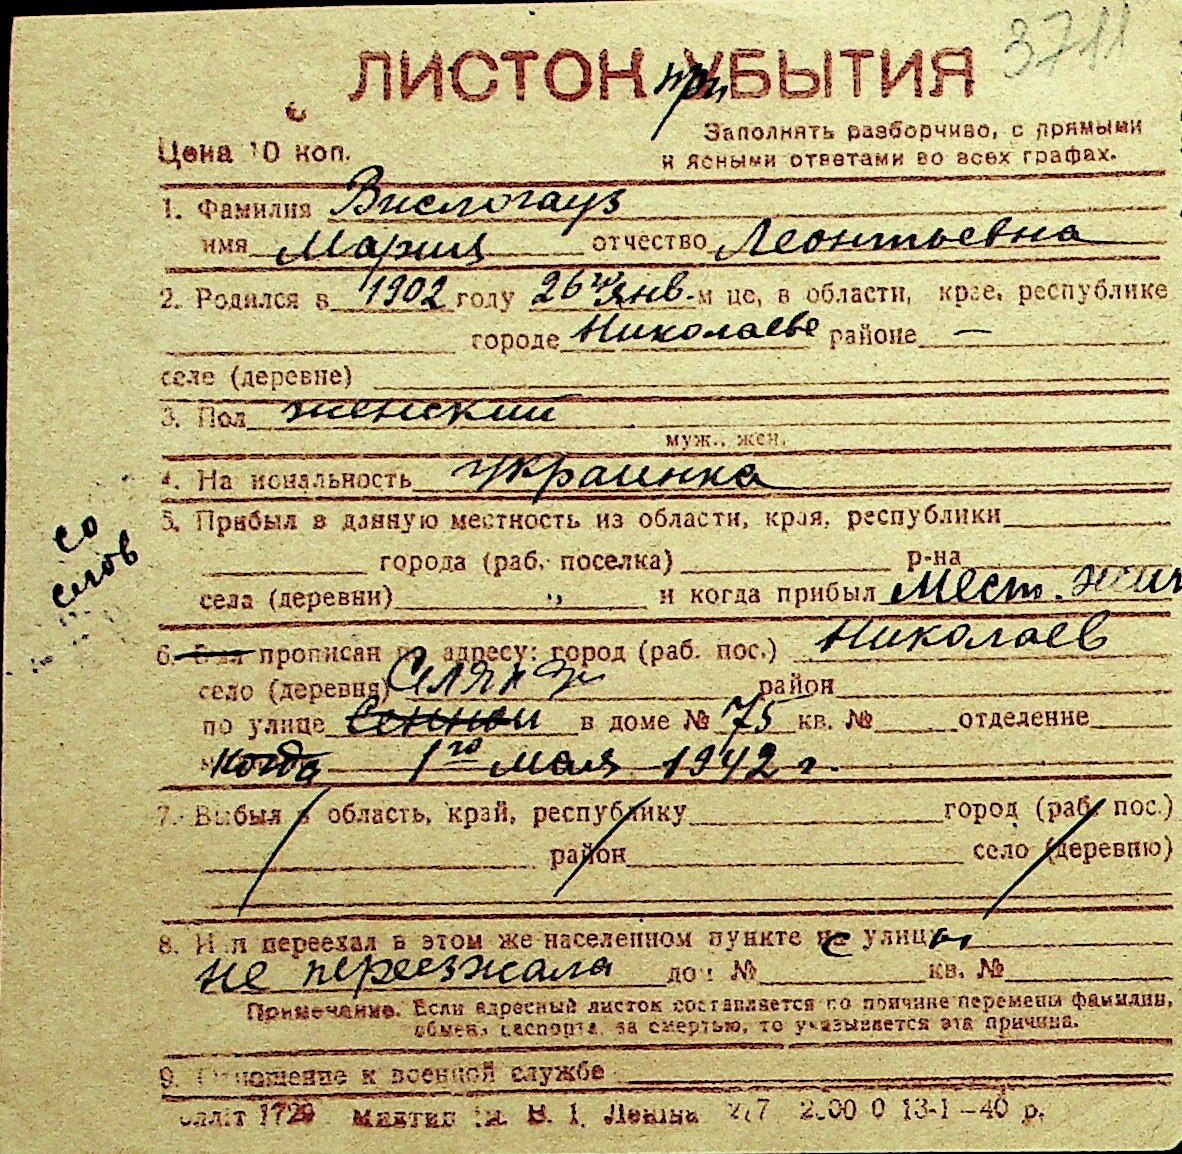 3711
ЛИСТОН при УБЫТИЯ
Цена 10 коп.
Заполнять разборчиво, с прямыми
и ясными ответами во всех графах.
1. Фамилия Вислогауз
имя Мария отчество Леонтьевна
2. Родился в 1902 году 26го янв. м це, в области, крае, республике
городе Николаеве районе —
селе (деревне)
3. Пол женский
муж., жен.
4. На иональность украинка
5. Прибыл в данную местность из области, края, республики
города (раб. поселка) р-на
со слов
села (деревни) „ и когда прибыл Мест. жит
6. Был прописан по адресу: город (раб. пос.) Николаев
село (деревня) район
по улице Сенной в доме № 75 кв. № отделение
когда 1го мая 1942 г.
7. Выбыл в область, край, республику город (раб. пос.)
район село (деревню)
8. И и переехал в этом же населенном пункте с улицы
не переезжала дом № кв. №
Примечание. Если адресный листок составляется по причине перемены фамилии,
обмена паспорта, за смертью, то указывается эта причина.
9. Отношение к военной службе
1729 им. В. І. Леніна 13-1-40 р.